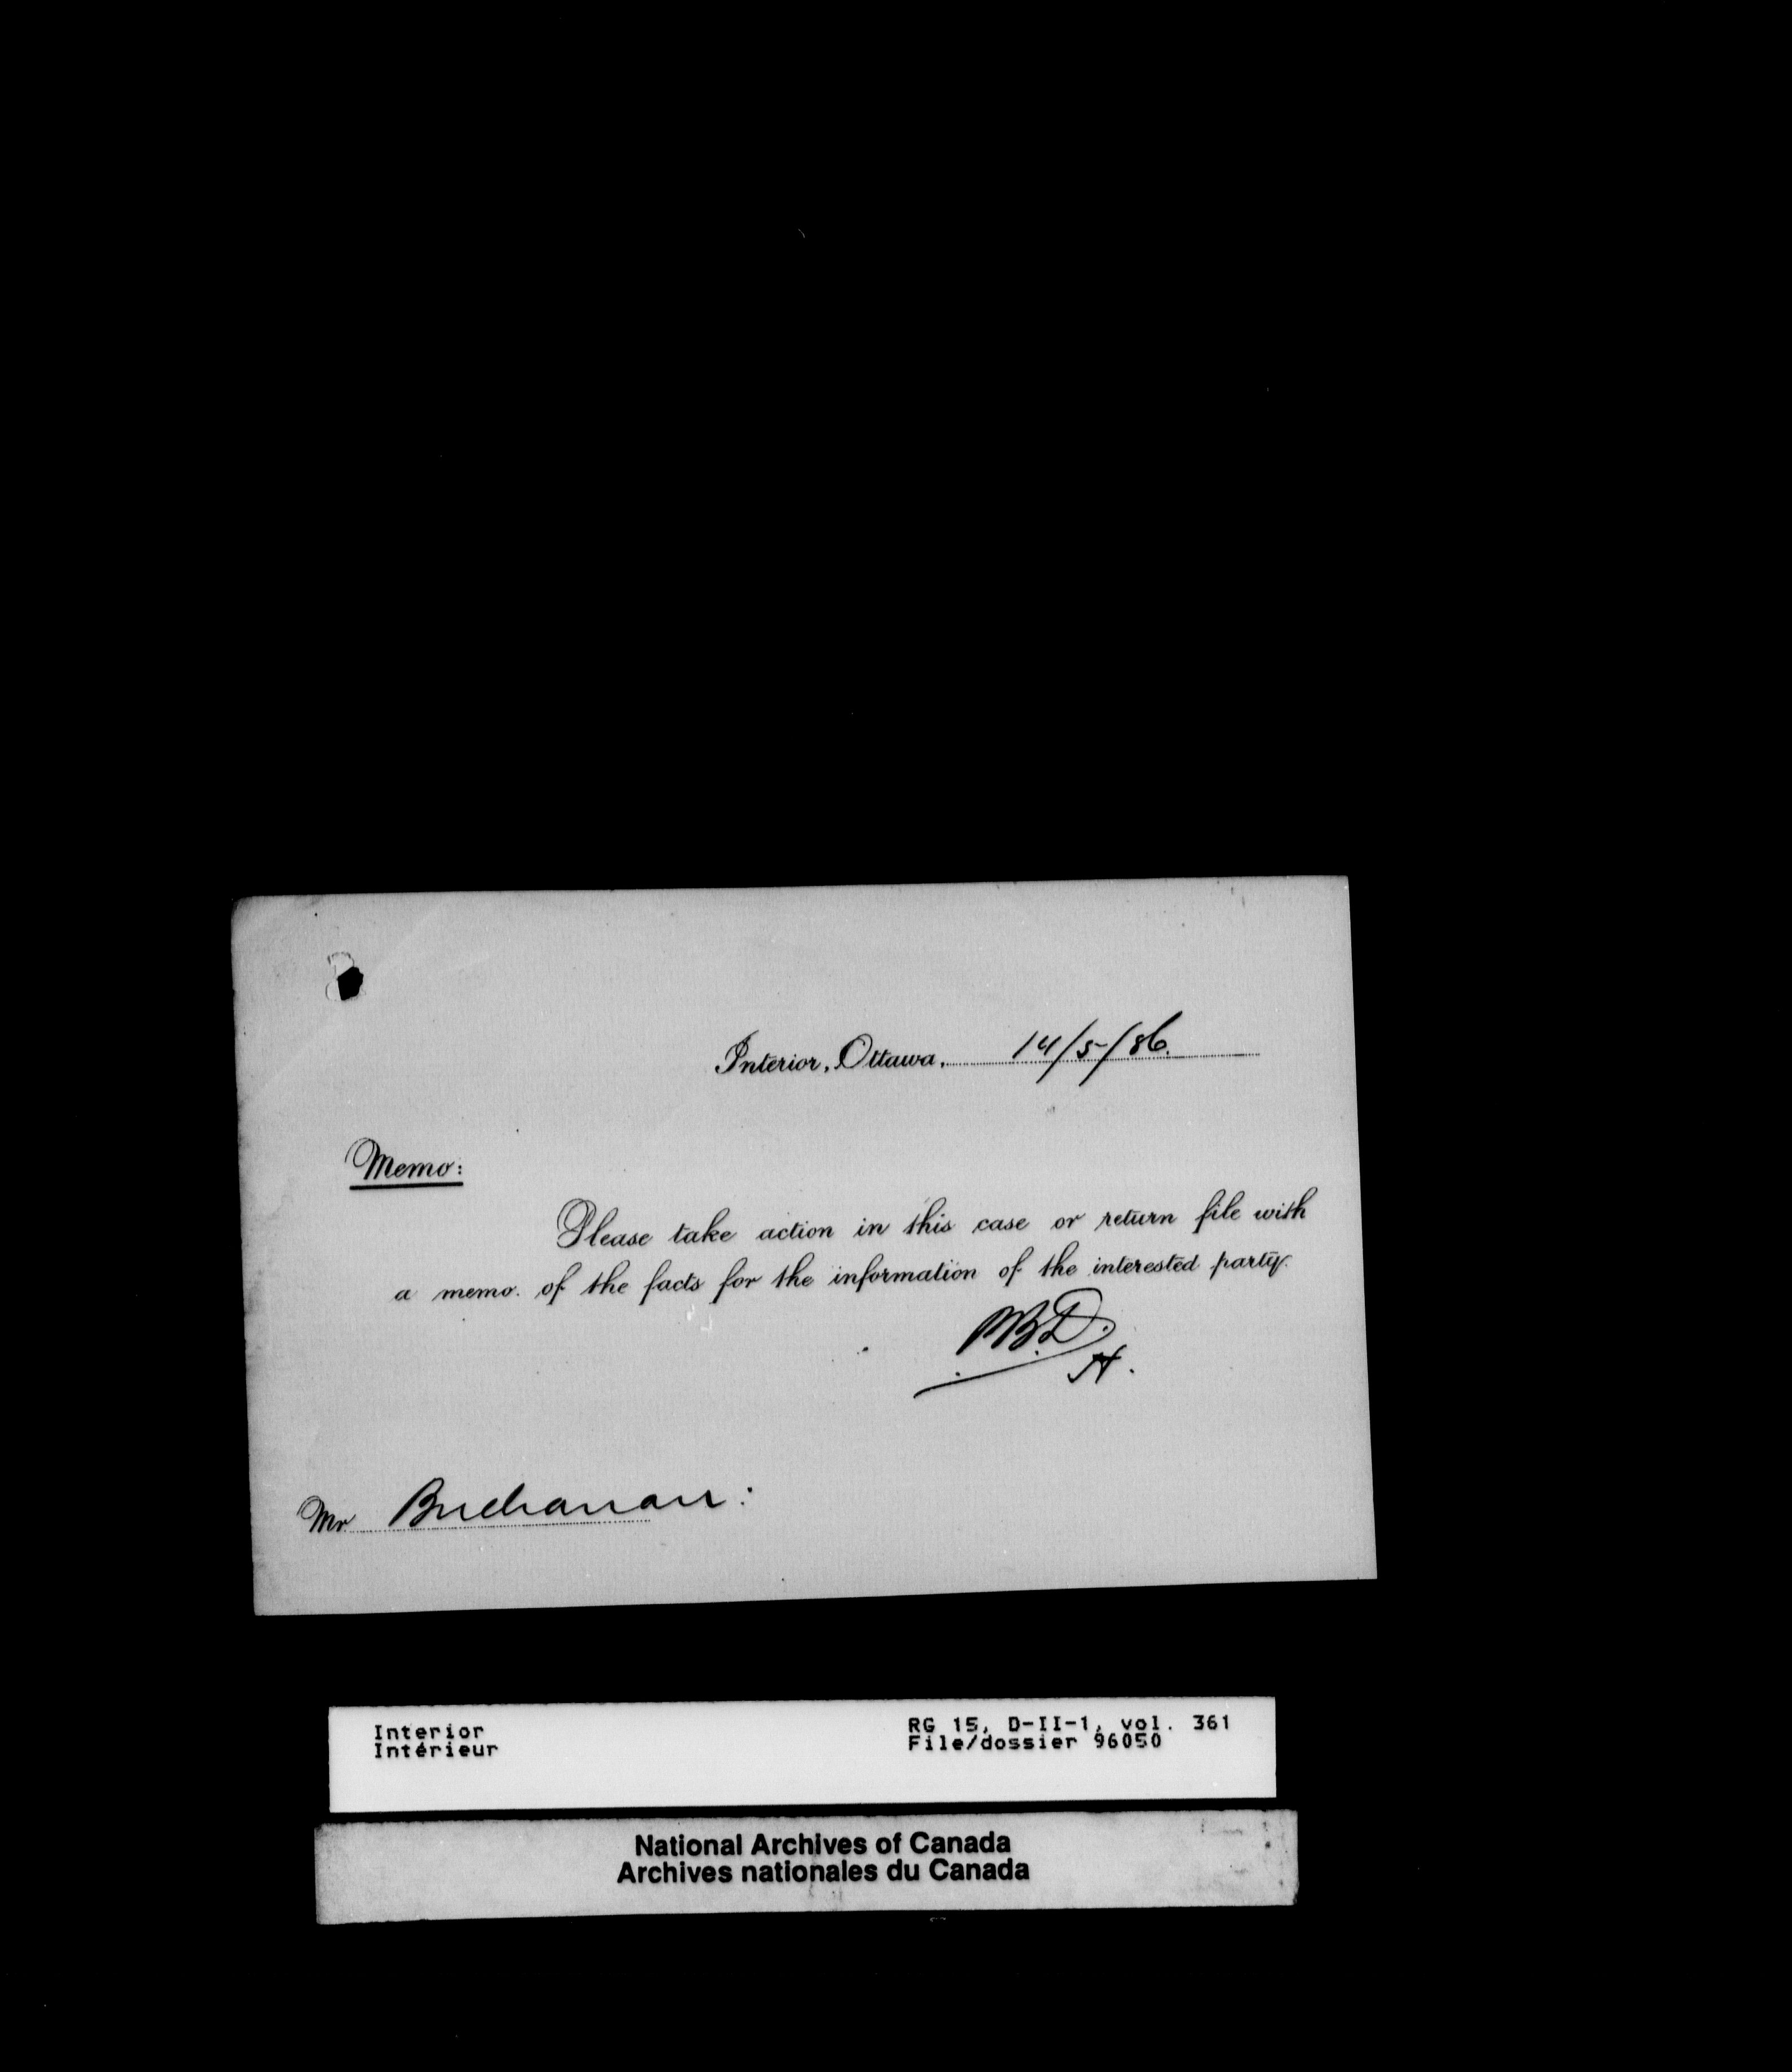 Interior, Ottawa, 14/5/86.
Memo:
Please take action in this case or return file with
a memo. of the facts for the information of the interested party.
H.
Mr Buchanan:
Interior
Intérieur
RG 15, D-II-1, vol. 361
File/dossier 96050
National Archives of Canada
Archives nationales du Canada